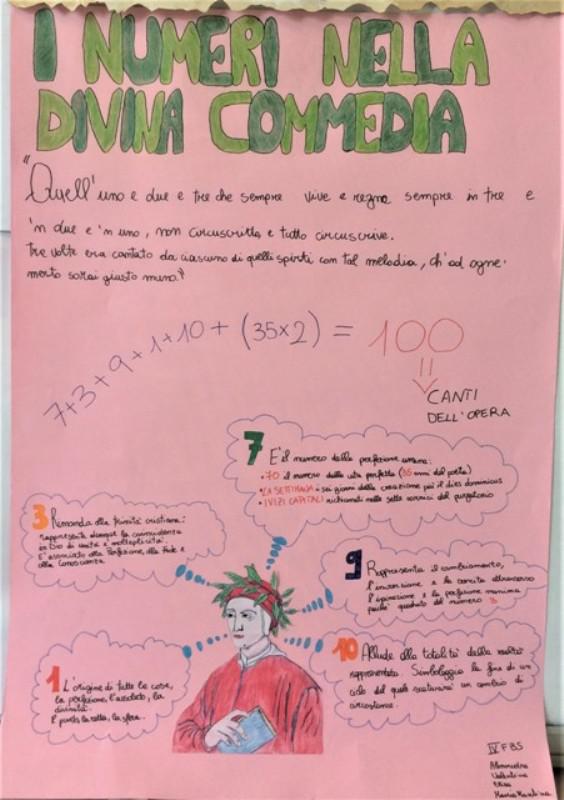 I NUMERI NELLA
DIVINA COMMEDIA
"Quell'uno e due e tre che sempre vive e regna sempre in tre e
'n due e 'n uno, non circuscritto, e tutto circuscrive.
Tre volte era cantato da ciascuno di quelli spirti con tal melodia, ch'ad ogne
merto saria giusto muno."
7+3+9+1+10+(35x2) = 100
CANTI
DELL'OPERA
7 È il numero della perfezione umana:
• 70 il numero della vita perfetta (35 anni del poeta)
• LA SETTIMANA: i sei giorni della creazione più il dies dominicus
• I VIZI CAPITALI richiamati nelle sette cornici del purgatorio
3 Rimanda alla trinità cristiana:
rappresenta dunque la coincidenza
in Dio di unità e molteplicità.
È associato alla Perfezione, alla Fede e
alla Conoscenza
9 Rappresenta il cambiamento,
l'invenzione e la crescita attraverso
l'ispirazione e la perfezione massima
perché quadrato del numero 3
1 L'origine di tutte le cose,
la perfezione, l'assoluto, la
divinità.
Il punto, la retta, la sfera.
10 Allude alla totalità della realtà
rappresentata. Simboleggia la fine di un
ciclo dal quale scaturirà un cambio di
circostanze.
IV F BS
Alessandra
Valentina
Elisa